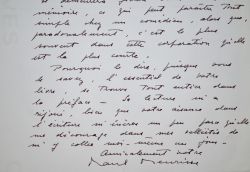 et demeurera
mémoire, ce qui peut paraître tout
simple chez un comédien, alors que
paradoxalement, c'est le plus
souvent dans cette corporation qu'elle
est la plus courte.
Pourquoi le dire, puisque vous
le savez, l'essentiel de votre
livre, se trouve tout entier dans
la préface - sa lecture m'a
réjoui, bien que votre aisance dans
l'écriture m'énerve un peu parce qu'elle
me décourage dans mes velléités de
m'y coller moi-même un jour.
Amicalement votre
Paul Meurisse